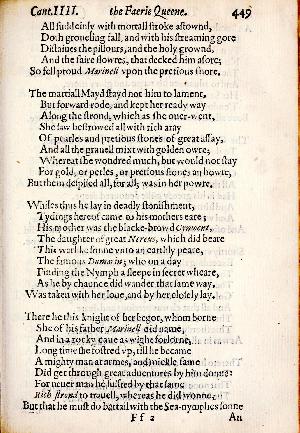 Cant.IIII. the Faerie Queene. 449
All suddeinly with mortall stroke astownd,
Doth groueling fall, and with his streaming gore
Distaines the pillours, and the holy grownd,
And the faire flowres, that decked him afore;
So fell proud Marinell vpon the pretious shore.
The martiall Mayd stayd not him to lament,
But forward rode, and kept her ready way
Along the strond, which as she ouer-went,
She saw bestrowed all with rich aray
Of pearles and pretious stones of great assay,
And all the grauell mixt with golden owre;
Whereat she wondred much, but would not stay
For gold, or perles, or pretious stones an howre,
But them despised all; for all; was in her powre.
Whiles thus he lay in deadly stonishment,
Tydings hereof came to his mothers eare;
His mother was the blacke-browd Cymoent,
The daughter of great Nereus, which did beare
This warlike sonne vnto an earthly peare,
The famous Dumarin; who on a day
Finding the Nymph a sleepe in secret wheare,
As he by chaunce did wander that same way,
Was taken with her loue, and by her closely lay.
There he this knight of her begot, whom borne
She of his father Marinell did name,
And in a rocky caue as wight forlorne,
Long time she fostred vp, till he became
A mighty man at armes, and mickle fame
Did get through great aduentures by him donne:
For neuer man he suffred by that same
Rich strond to trauell, whereas he did wonne,
But that he must do battail with the Sea-nymphes sonne
F f 2 An